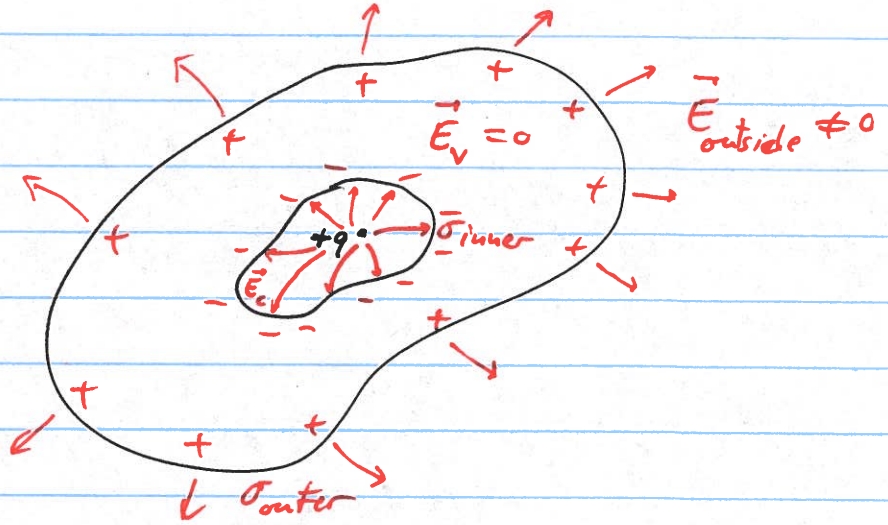 E⃗ᵥ = 0
E⃗outside ≠ 0
+q
σinner
E⃗c
σouter